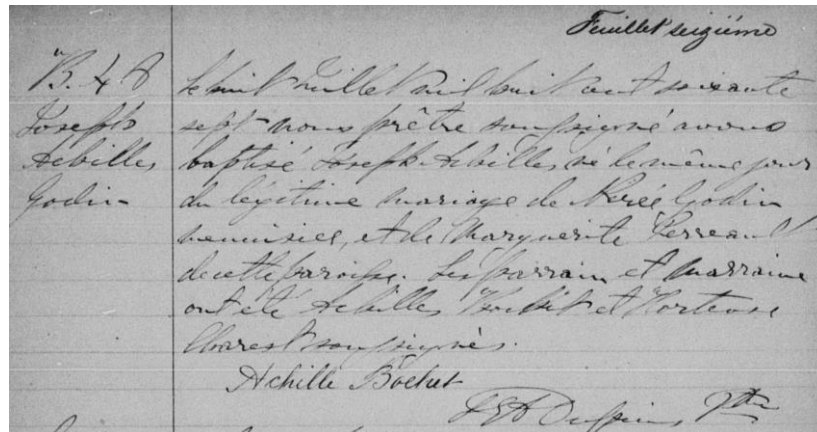 Feuillet seizième
B. 48
Joseph
Achilles
Godin
Le huit juillet mil huit cent soixante
sept nous prêtre soussigné avons
baptisé Joseph Achilles, né le même jour
du légitime mariage de Nérée Godin
menuisier, et de Marguerite Perreault
de cette paroisse. Les parrain et marraine
ont été Achilles et Hortense
Charest soussignés.
Achille Bochet
Ptre